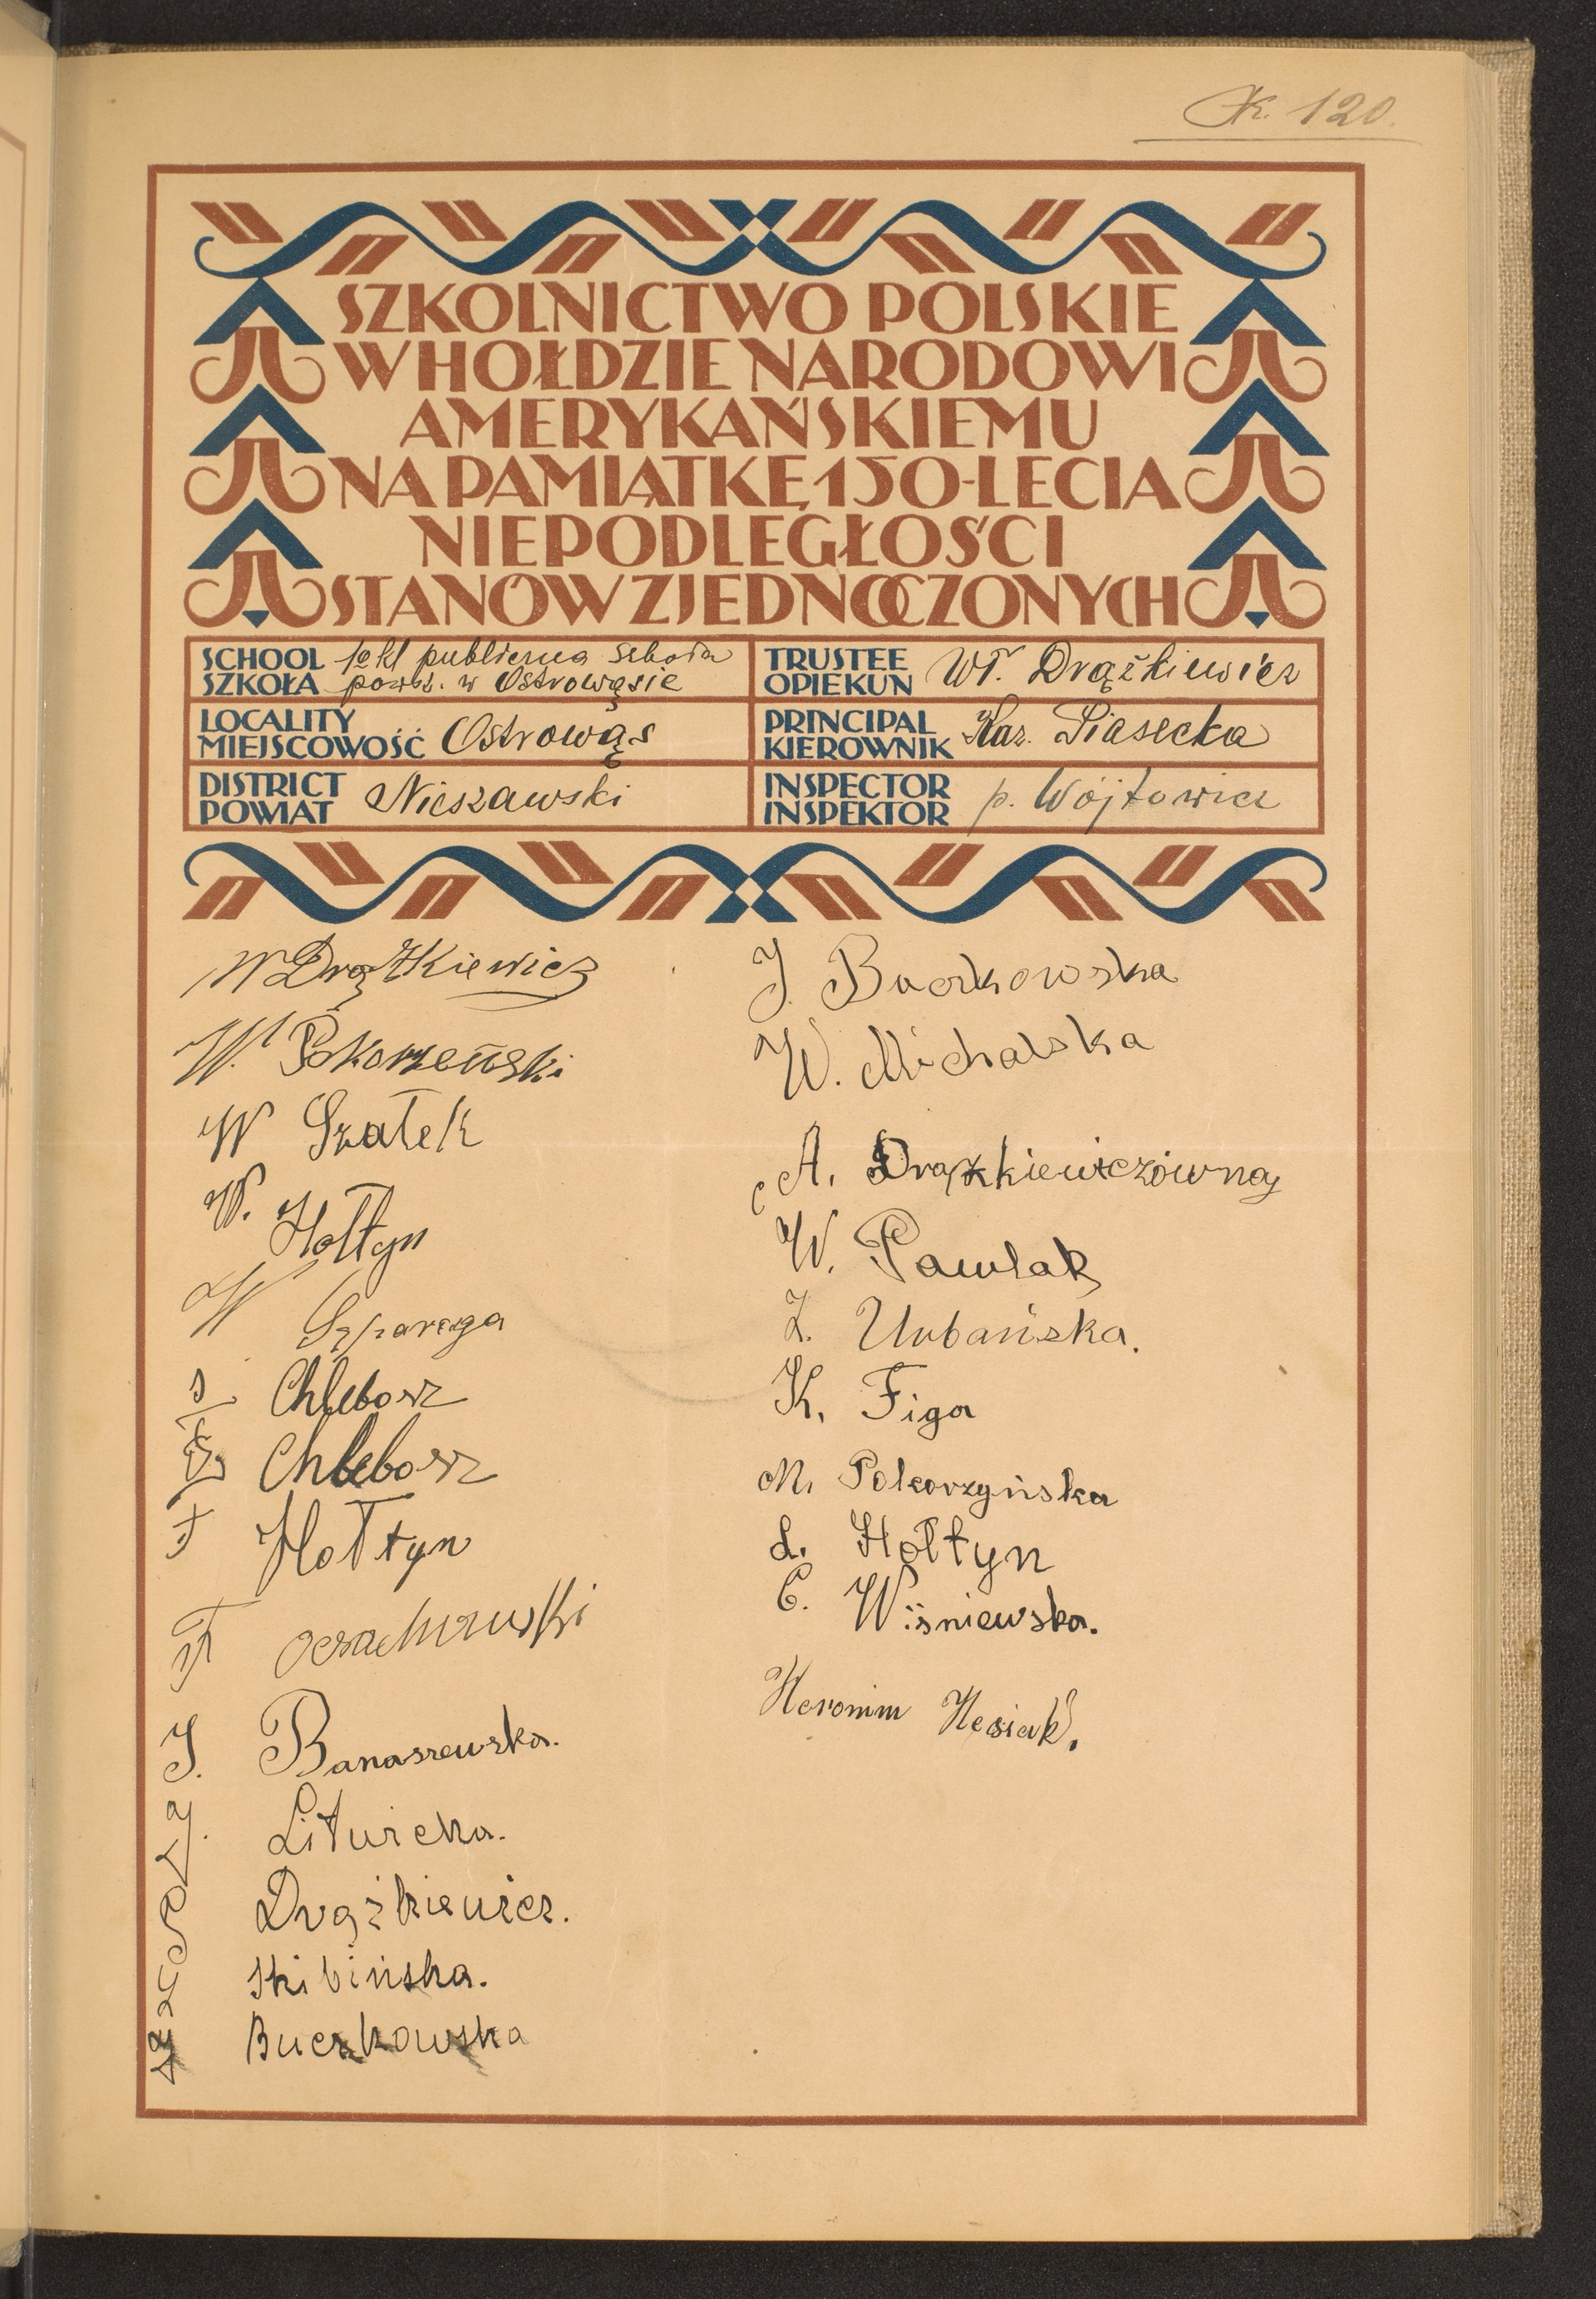 K. 120.
SZKOLNICTWO POLSKIE
W HOŁDZIE NARODOWI
AMERYKAŃSKIEMU
NA PAMIĄTKĘ 150-LECIA
NIEPODLEGŁOŚCI
STANÓW ZJEDNOCZONYCH
SCHOOL SZKOŁA 1o kl publiczna szkoła powsz. w Ostrowąsie
TRUSTEE OPIEKUN Wł. Drążkiewicz
LOCALITY MIEJSCOWOŚĆ Ostrowąs
PRINCIPAL KIEROWNIK Kaz. Piasecka
DISTRICT POWIAT Nieszawski
INSPECTOR INSPEKTOR p. Wójtowicz
W Drążkiewicz
Wł. Pokorzeński
W Szałek
W. Hołtyn
W Szparaga
Chlebosz
Chlebosz
F Hołtyn
J. Banaszewska.
Liturcka.
Drążkiewicz.
Skibińska.
Buczkowska
J. Buczkowska
W. Michalska
A. Drążkiewiczówna
W. Pawlak
Z. Urbańska.
K. Figa
M. Pokorzyńska
L. Hołtyn
C. Wiśniewska.
Heronim